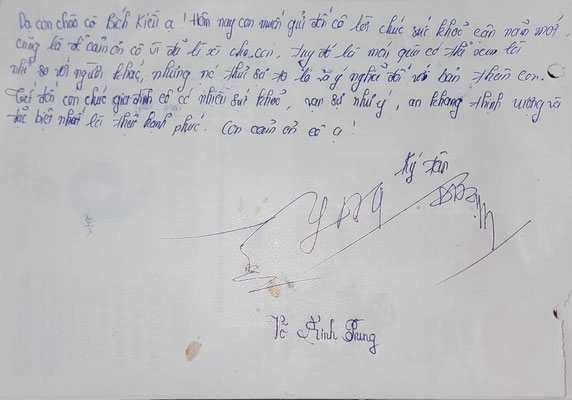 Dạ con chào cô Bích Kiều ạ! Hôm nay con muốn gửi đến cô lời chúc sức khoẻ cận năm mới,
cũng là để cảm ơn cô vì đã lì xì cho con, tuy đó là món quà có thể xem là
nhỏ so với người khác, nhưng nó thật sự to là ý nghĩa đối với bản thân con.
Tết đến con chúc gia đình cô có nhiều sức khoẻ, vạn sự như ý, an khang thịnh vượng và
đặc biệt nhất là thật hạnh phúc. Con cảm ơn cô ạ!
Ký tên
Võ Minh Trung